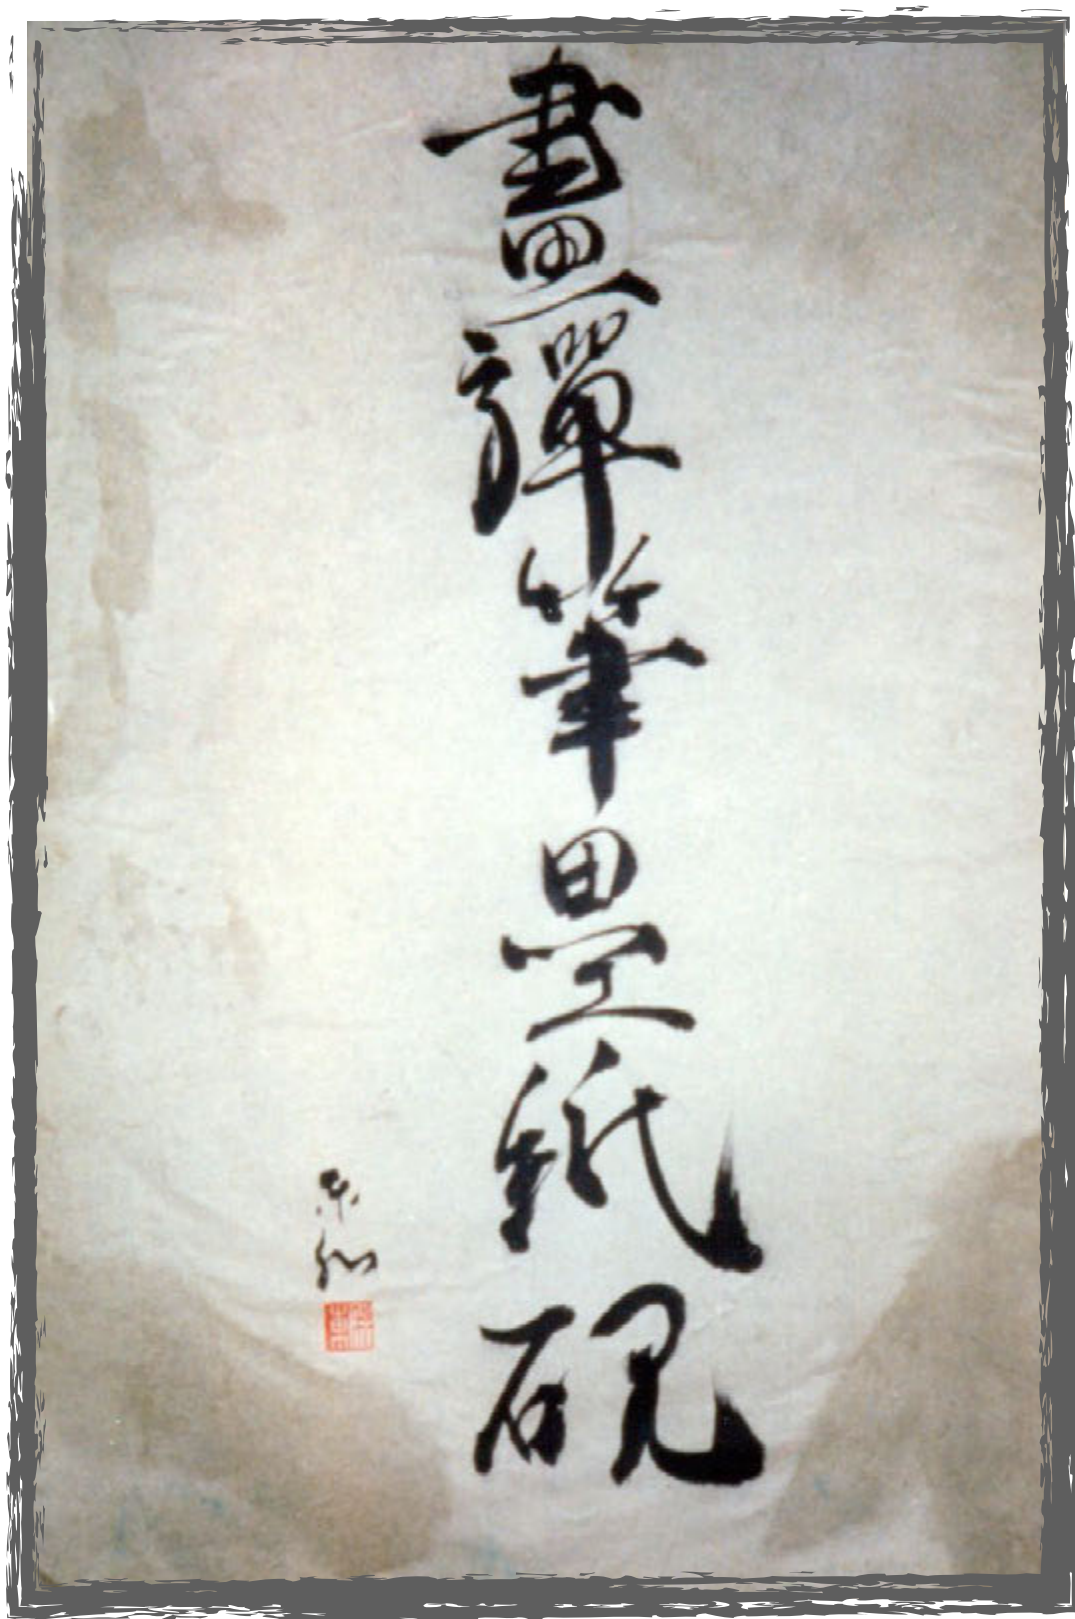 畫禪筆墨紙硯